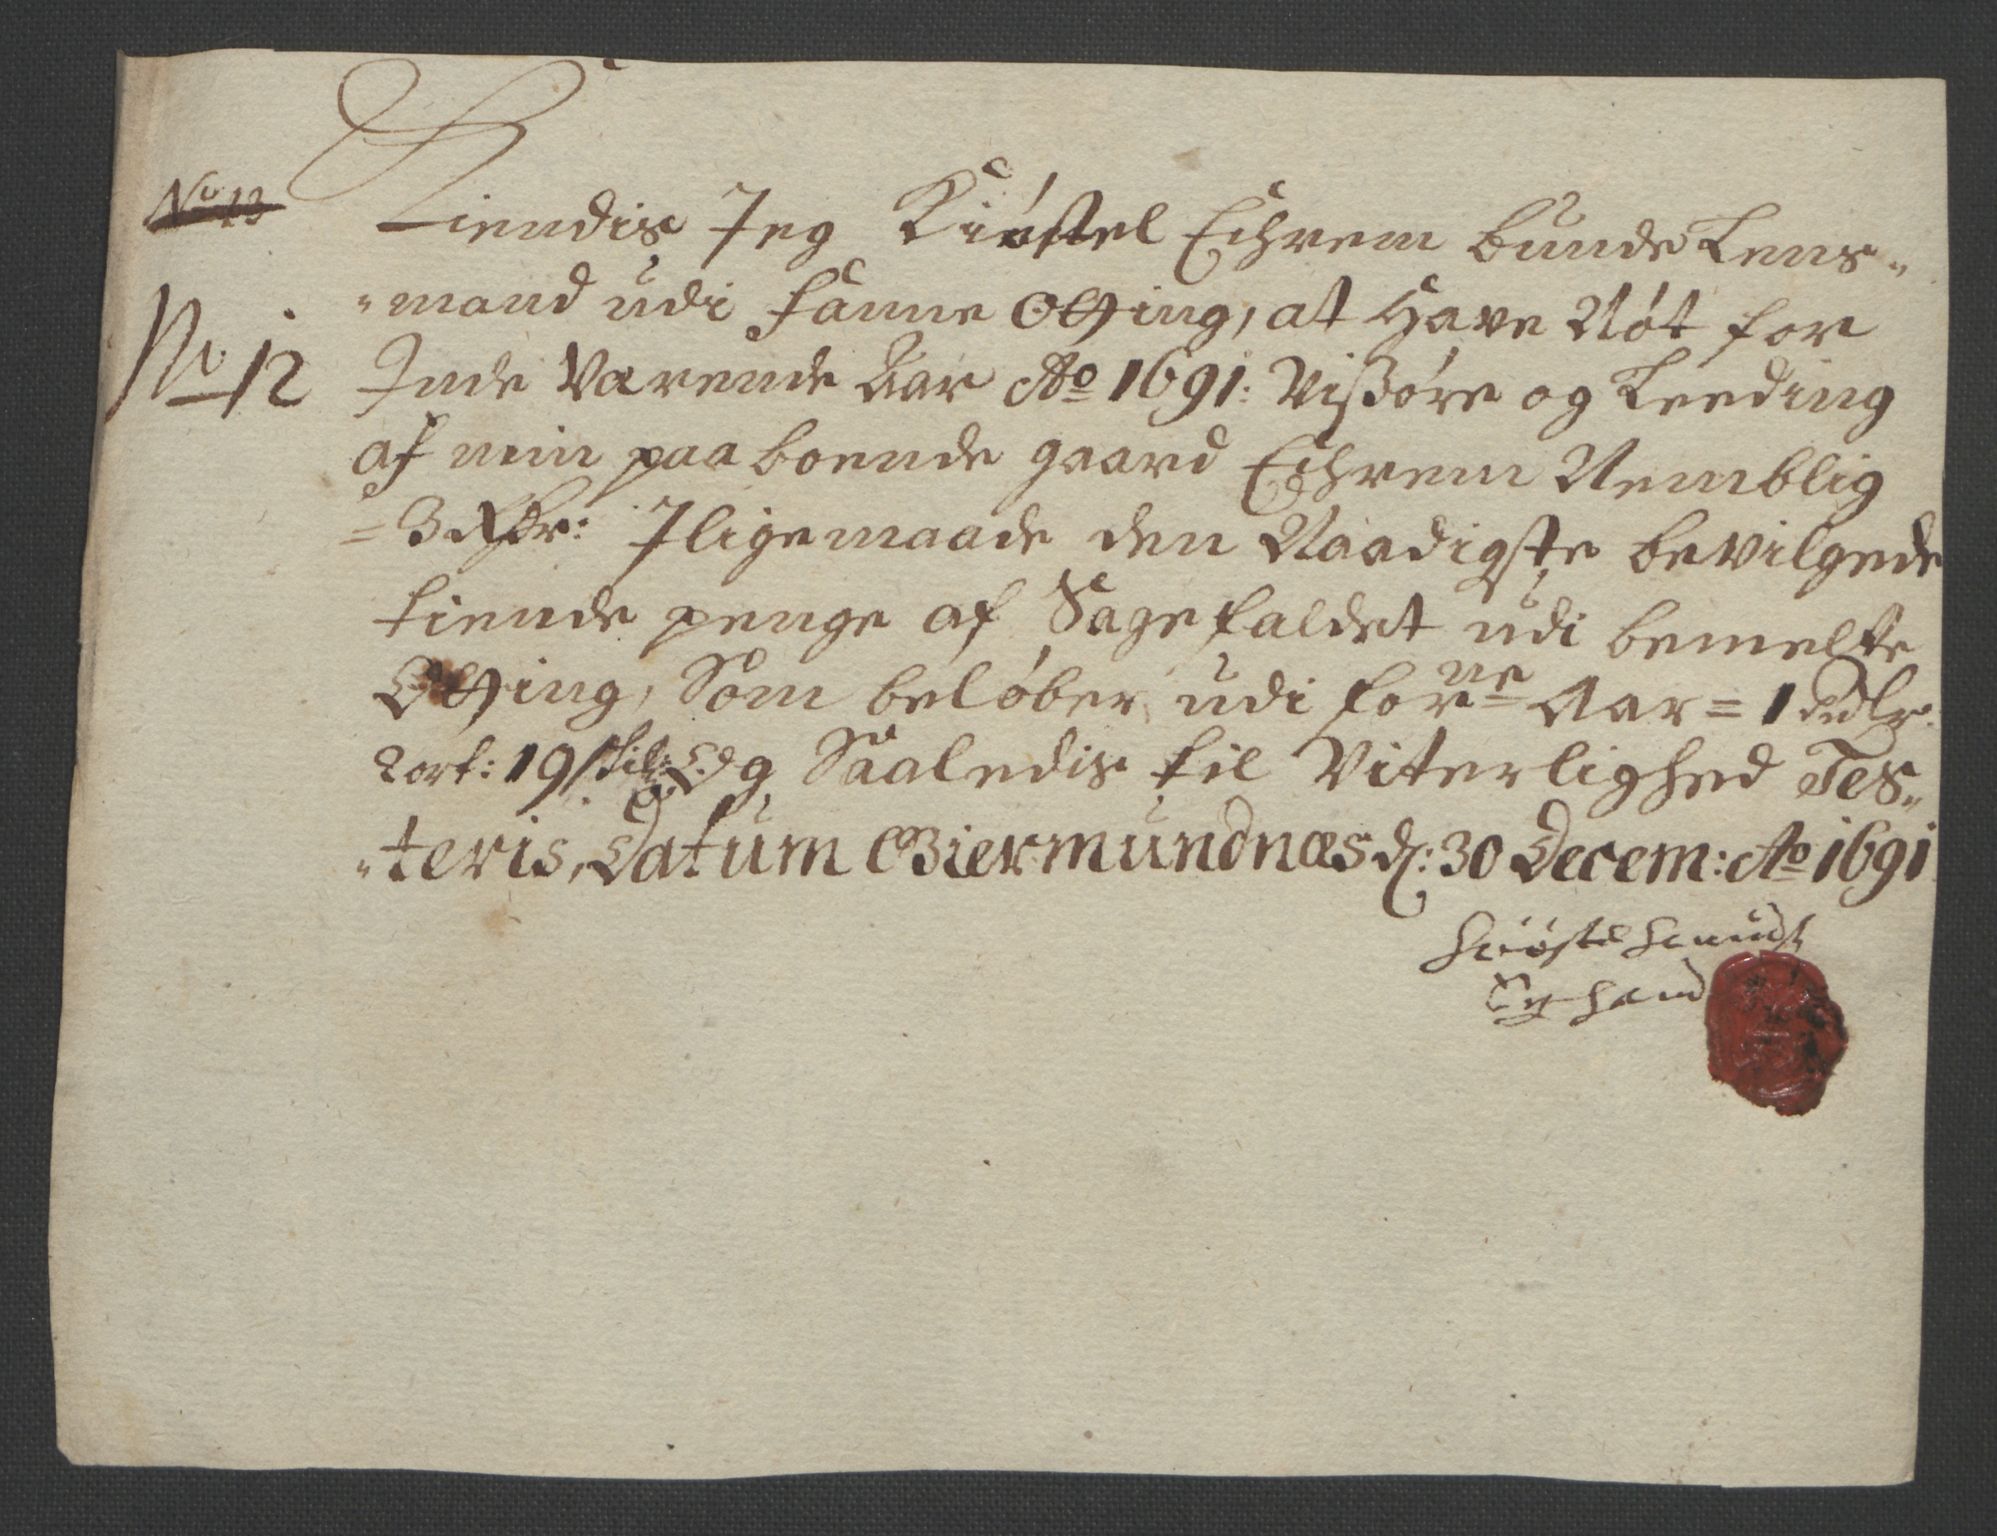 No 13
Kiendis Jeg Kiøstel Echrem bunde Lens-
mand udi Fanne Otting, at Have Nøt for
No 12
Inde Værende Aar Ao 1691: Vißøre og Leeding
af min paaboende gaard Echrem Nemblig
= 3 Rdr: Jligemaade den Naadigste bevilgede
tiende penge af Sagefaldet udi bemelte
Otting, Som beløber udi forne Aar = 1 Rdlr.
2 ort: 19 skil: Og Saaledis til Viterlighed Tes-
teris, Datum Giermundnæs d: 30 Decem: Ao 1691
Kiøstel Knuds
Egh hand